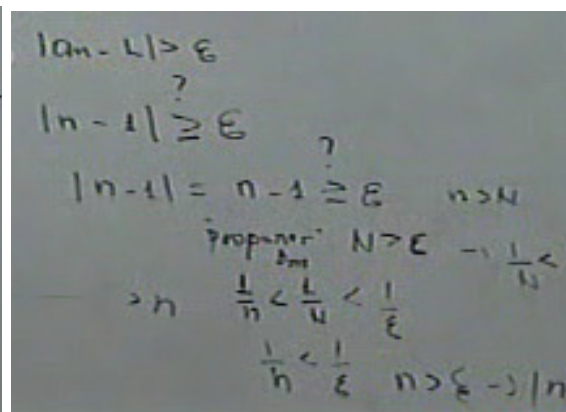 |an - L| > ε
?
|n - 1| ≥ ε
?
|n - 1| = n - 1 ≥ ε n > N
N > ε → 1/N <
> n 1/n < 1/N < 1/ε
1/n < 1/ε n > ε → |n